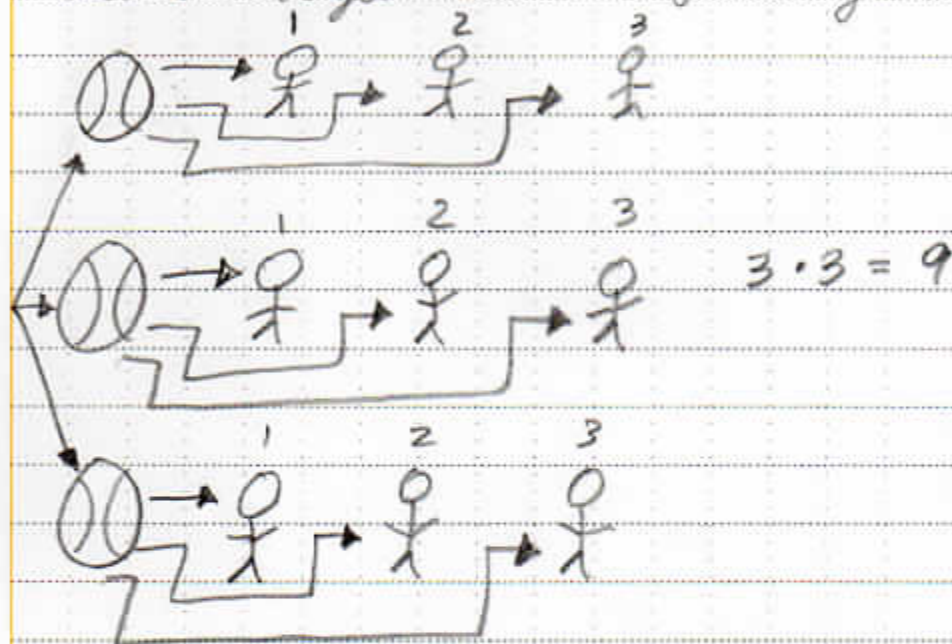 1 2 3
1 2 3
3 · 3 = 9
1 2 3